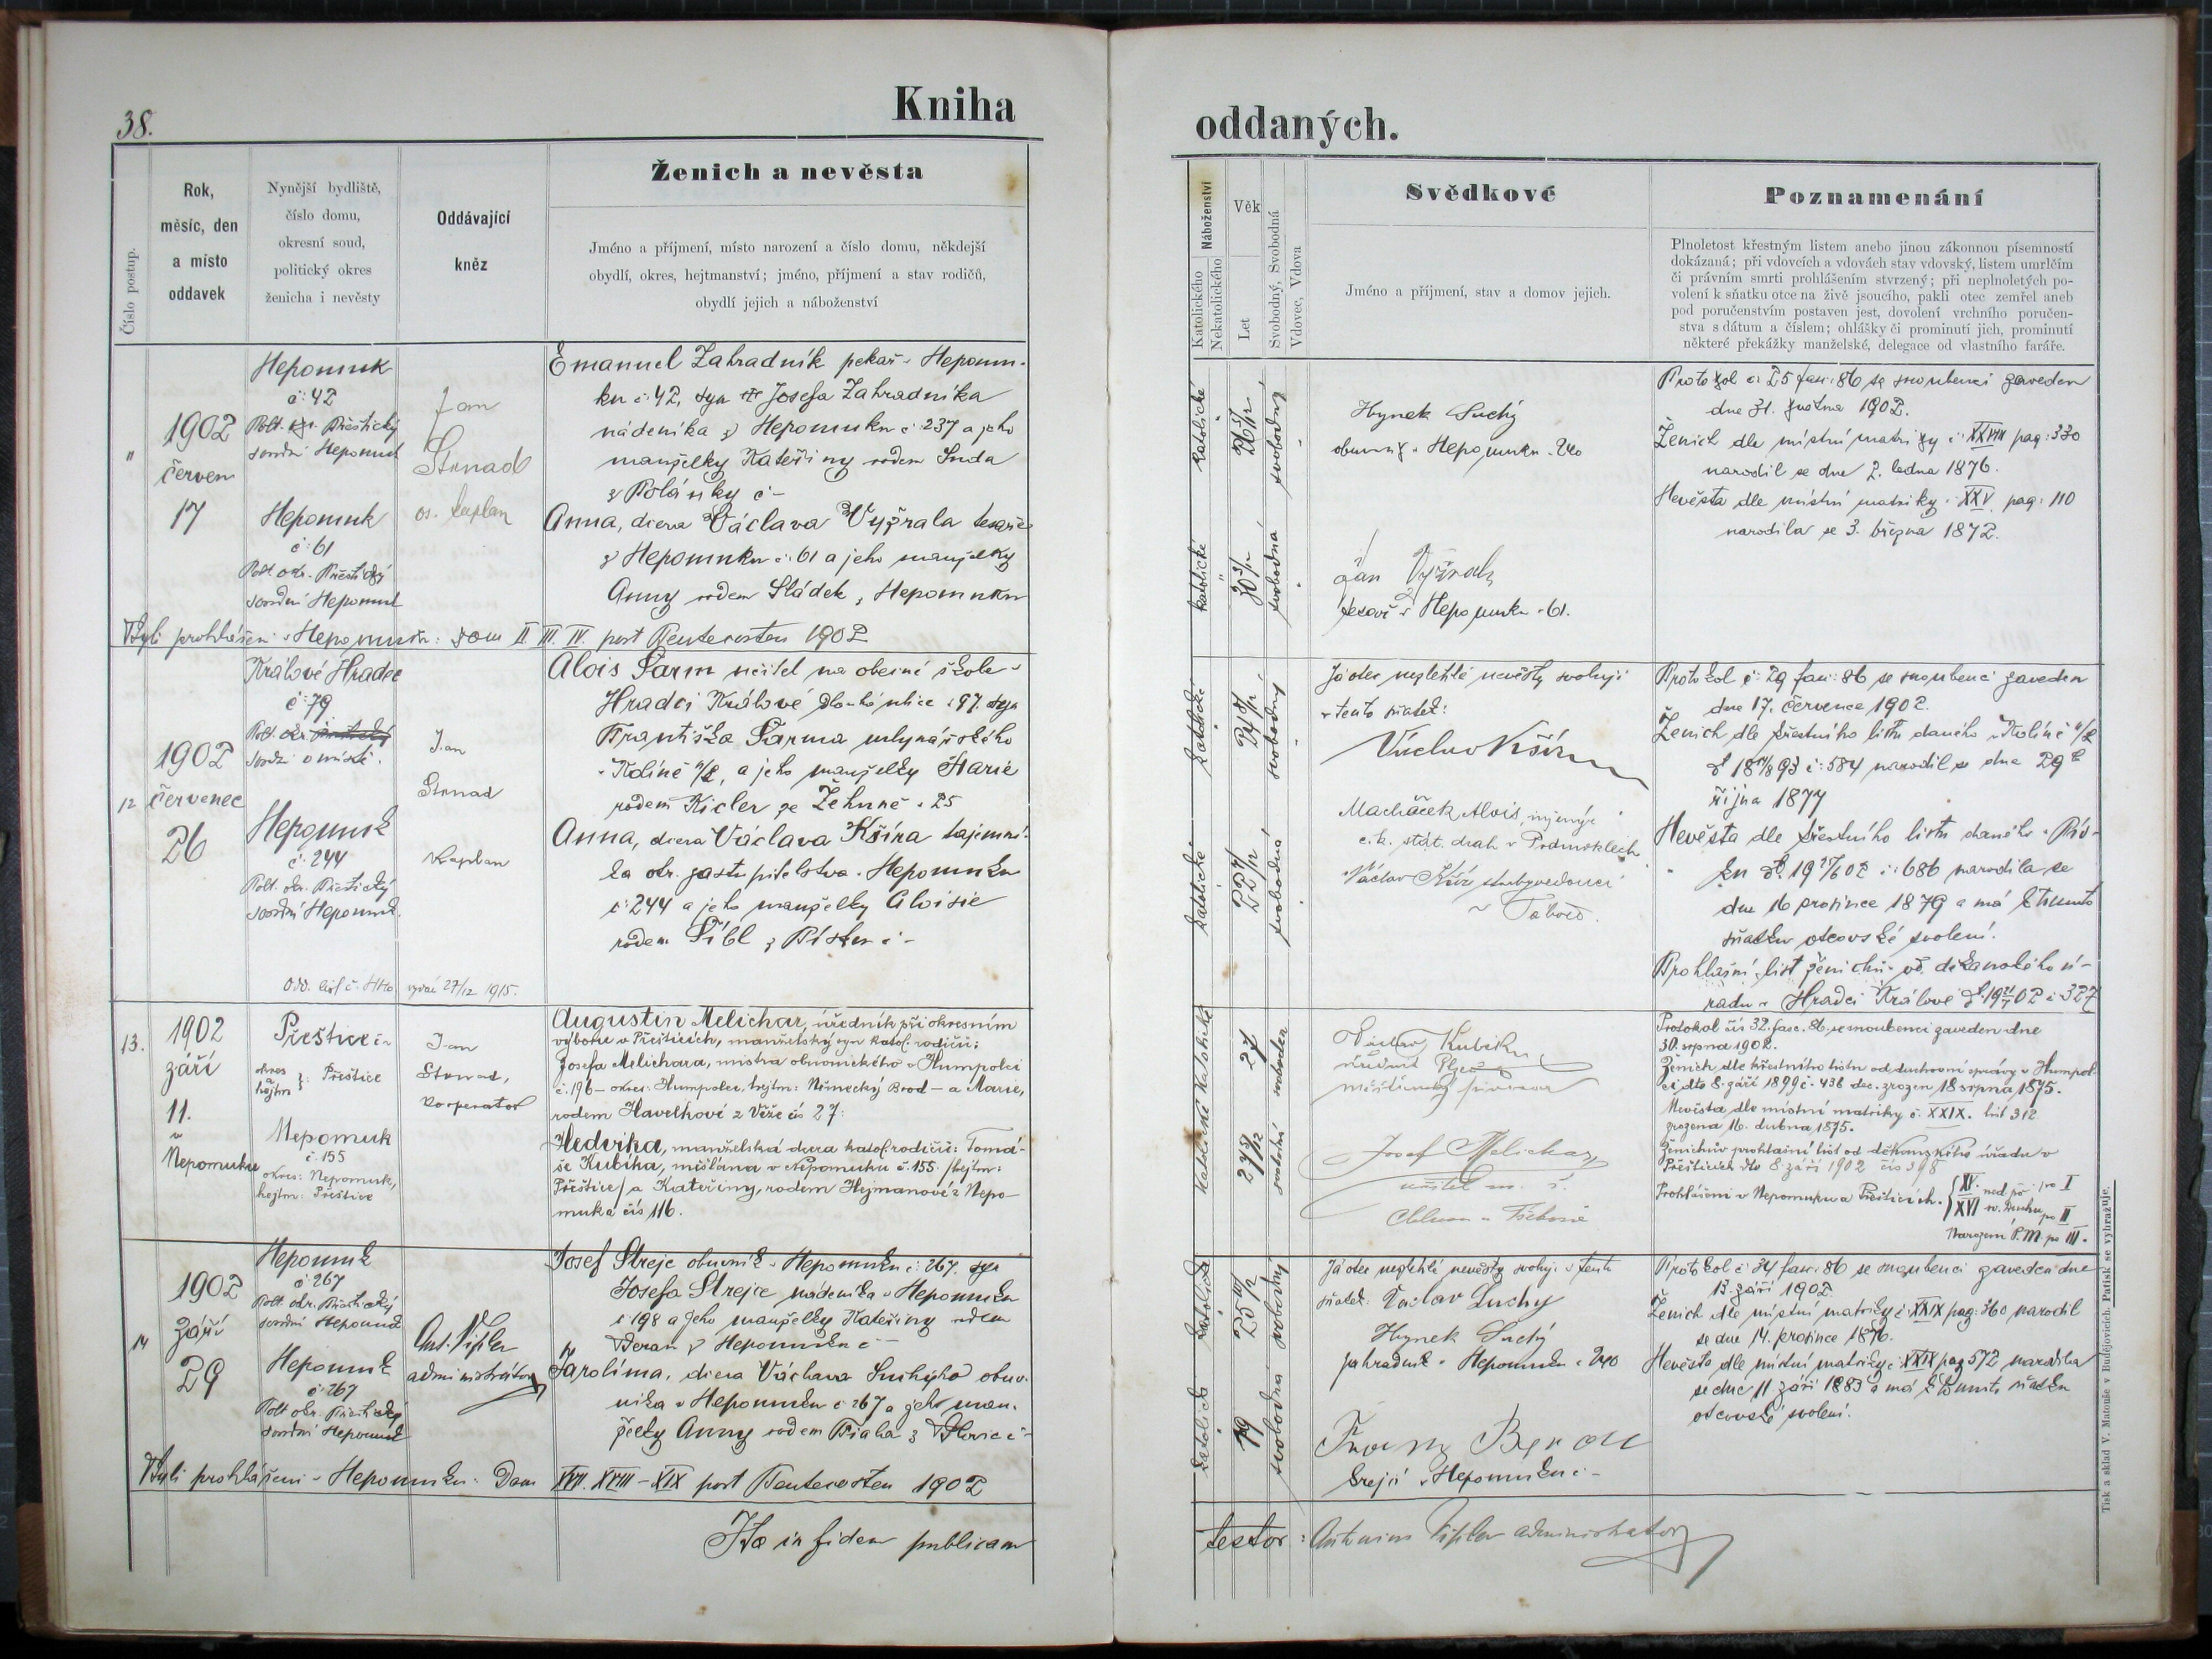 38.
Kniha
oddaných.
Číslo postup.
Rok,
měsíc, den
a místo
oddavek
Nynější bydliště,
číslo domu,
okresní soud,
politický okres
ženicha i nevěsty
Oddávající
kněz
Ženich a nevěsta
Jméno a příjmení, místo narození a číslo domu, někdejší
obydlí, okres, hejtmanství; jméno, příjmení a stav rodičů,
obydlí jejich a náboženství
Náboženství
Katolického
Nekatolického
Věk
Let
Svobodný, Svobodná
Vdovec, Vdova
Svědkové
Jméno a příjmení, stav a domov jejich.
Poznamenání
Plnoletost křestným listem anebo jinou zákonnou písemností
dokázaná; při vdovcích a vdovách stav vdovský, listem umrlčím
či právním smrti prohlášením stvrzený; při neplnoletých po-
volení k sňatku otce na živě jsoucího, pakli otec zemřel aneb
pod poručenstvím postaven jest, dovolení vrchního poručen-
stva s dátum a číslem; ohlášky či prominutí jich, prominutí
některé překážky manželské, delegace od vlastního faráře.
1902
červen
17
Nepomuk
č: 42
Polt. okr. Přeštický
soudní Nepomuk
Nepomuk
č: 61
Polt. okr. Přeštický
soudní Nepomuk
Jan
Strnad
os. kaplan
Emanuel Zahradník pekař v Nepomu-
ku č 42, syn Josefa Zahradníka
nádeníka z Nepomuku č 237 a jeho
manželky Kateřiny rodem Suda
z Polánky č –
Anna, dcera Václava Vyžrala tesaře
z Nepomuku č: 61 a jeho manželky
Anny rodem Sládek z Nepomuku
katolické
26 5/12
svobodný
katolické
30 3/12
svobodná
Hynek Suchý
obuvník v Nepomuku 240
Jan Vyžral
tesař v Nepomuku 61.
Protokol č: 25 fasc: 86 se snoubenci zaveden
dne 31. května 1902.
Ženich dle místní matriky č: XXVIII pag: 330
narodil se dne 2. ledna 1876.
Nevěsta dle místní matriky č XXV pag: 110
narodila se 3. března 1872.
Byli prohlášeni v Nepomuku: Dom II. III. IV. post Pentecosten 1902
12
1902
červenec
26
Králové Hradec
č 79
Polt. okr.
soudní v místě.
Nepomuk
č: 244
Polt. okr. Přeštický
soudní Nepomuk
Odd. list č: vydán 27/12 1915.
Jan
Strnad
Kaplan
Alois Šarm učitel na obecné škole v
Hradci Králové Dlouhá ulice č 97. syn
Františka Šarma mlynářského
v Kolíně n/L, a jeho manželky Marie
rodem Kicler ze Žehuně č 25
Anna, dcera Václava Kšíra tajemní-
ka okr. zastupitelstva v Nepomuku
č: 244 a jeho manželky Aloisie
rodem Šíbl z Písku č –
katolické
24 8/12
svobodný
katolické
22 7/12
svobodná
Já otec nezletilé nevěsty svoluji
v tento sňatek:
Václav Kšír
Macháček Alois, inženýr
c. k. stát. drah v Podmoklech
Václav Kšír
v Táboře.
Protokol č: 29 fasc: 86 se snoubenci zaveden
dne 17. července 1902.
Ženich dle křestního listu daného v Kolíně n/L
dto 18 93 č: 584 narodil se dne 29
října 1877
Nevěsta dle křestního listu daného v Pís-
ku dto 19 02 č: 686 narodila se
dne 16 prosince 1879 a má k tomuto
sňatku otcovské svolení.
Prohlašní list ženichův od děkanského ú-
řadu v Hradci Králové dto 19 02 č 327
13.
1902
září
11.
v
Nepomuku
Přeštice č –
okres
a
hejtm }: Přeštice
Nepomuk
č. 155
okres: Nepomuk,
hejtm: Přeštice
Jan
Strnad,
kooperator
Augustin Melichar, úředník při okresním
výboru v Přešticích, manželský syn katol. rodičů:
Josefa Melichara, mistra obuvnického v Humpolci
č. 196 – okres: Humpolec, hejtm: Německý Brod – a Marie,
rodem Havelkové z Věže čís 27:
Hedvika, manželská dcera katol. rodičů: Tomá-
še Kubíka, měšťana v Nepomuku č. 155 /hejtm:
Přeštice/ a Kateřiny, rodem Hejmanové z Nepo-
muka čís 116.
katolické
27
svoboden
katolické
27 5/12
svobodná
Václav Kubík
úředník Plzeň
měšťanský pivovar
Josef Melichar
učitel m. š.
Chlum u Třeboně
Protokol čís 32. fasc. 86. se snoubenci zaveden dne
30. srpna 1902.
Ženich dle křestního listu od duchovní správy v Humpol-
ci dto 8. září 1899 č. 438 dec. zrozen 18 srpna 1875.
Nevěsta dle místní matriky č. XXIX. list 312
zrozena 16. dubna 1875.
Ženichův prohlašní list od děkanského úřadu v
Přešticích dto 8. září 1902 čís 398
Prohlášeni v Nepomuku a Přešticích. { XV. ned. po po I
XVI sv. Duchu po II
Narození P. M. po III.
14
1902
září
29
Nepomuk
č: 267
Polt. okr. Přeštický
soudní Nepomuk
Nepomuk
č: 267
Polt. okr. Přeštický
soudní Nepomuk
Ant. Fišler
administrátor
Josef Strejc obuvník v Nepomuku č: 267. syn
Josefa Strejce nádeníka v Nepomuku
č 198 a jeho manželky Kateřiny rodem
Beran z Nepomuku č –
Karolína, dcera Václava Suchýho obuv-
níka v Nepomuku č 267 a jeho man-
želky Anny rodem Braha z Dvorce č –
katolické
25 9/12
svobodný
katolické
19
svobodná
Já otec nezletilé nevěsty svoluji v tento
sňatek: Václav Suchý
Hynek Suchý
zahradník v Nepomuku č 240
Franz Beran
krejčí v Nepomuku č –
Protokol č 34 fasc: 86 se snoubenci zaveden dne
13. září 1902
Ženich dle místní matriky č XXIX pag: 360 narodil
se dne 14. prosince 1876.
Nevěsta dle místní matriky č XXIX pag 572 narodila
se dne 11 září 1883 a má k tomuto sňatku
otcovské svolení.
Byli prohlášeni v Nepomuku: Dom XVII. XVIII – XIX post Pentecosten 1902
Ita in fidem publicam
testor: Antonius Fišler administrator
Tisk a sklad V. Matouše v Budějovicích. Patisk se vyhražuje.